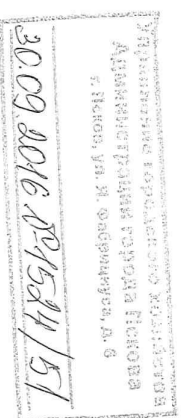 Управление городского хозяйства
Администрации города Пскова
г. Псков, ул. Я. Фабрициуса, д. 6
30.09.2016 № 1524/51